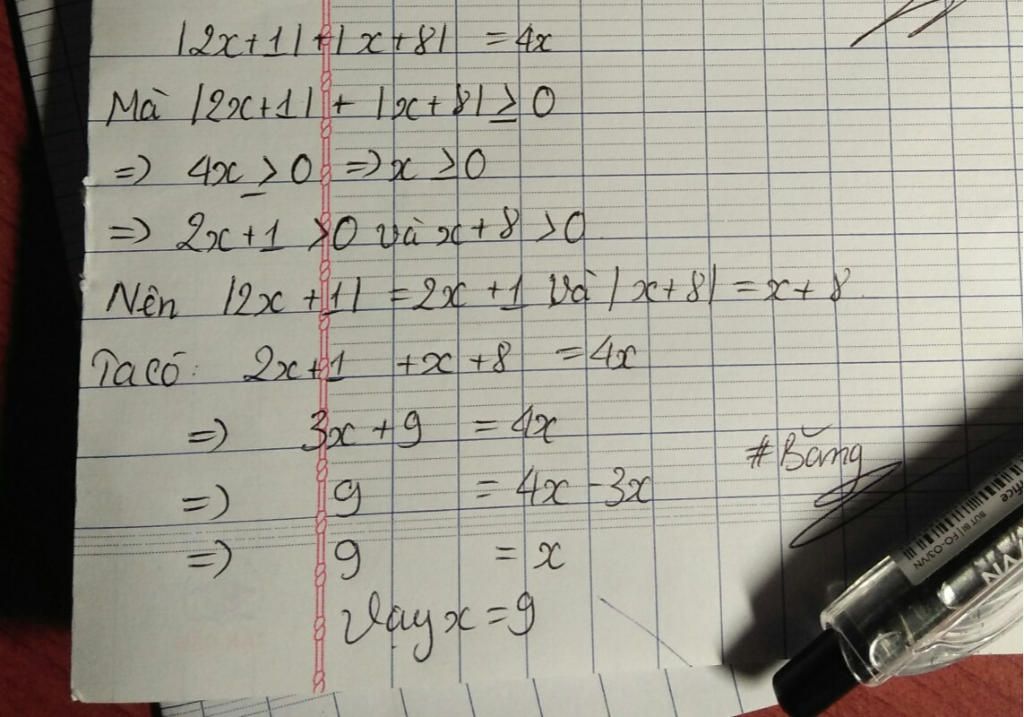 |2x+1|+|x+8| = 4x
Mà |2x+1| + |x+8| ≥ 0
=> 4x ≥ 0 => x ≥ 0
=> 2x+1 >0 và x+8 >0
Nên |2x+1| = 2x+1 Và |x+8| = x+8.
Ta có: 2x+1 +x+8 = 4x
=> 3x+9 = 4x
=> 9 = 4x-3x
=> 9 = x
Vậy x = 9
#Băng
ffice
BÚT BI FO-03/VN
VN